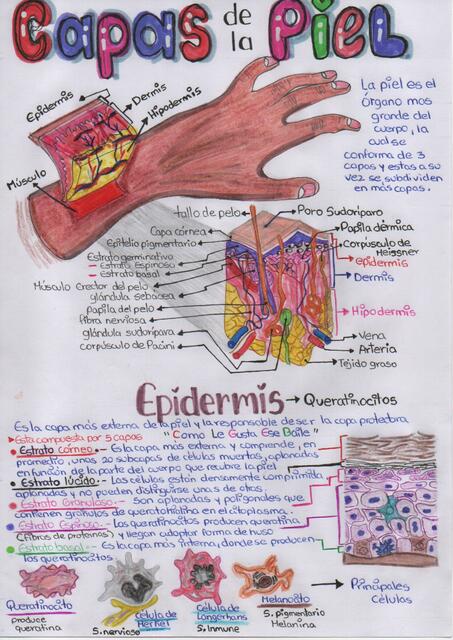 Capas de la Piel
Epidermis
Dermis
Hipodermis
Músculo
La piel es el
Órgano mas
grande del
cuerpo, la
cual se
conforma de 3
capas y estas a su
vez se subdividen
en más capas.
tallo de pelo
Capa córnea
Epitelio pigmentario
Estrato germinativo
Estrato Espinoso
estrato basal
Músculo Erector del pelo
glándula sebacea
papila del pelo
fibra nerviosa
glándula sudoripara
corpúsculo de Pacini
Poro Sudoríparo
Papila dérmica
Corpúsculo de
Meissner
epidermis
Dermis
Hipodermis
Vena
Arteria
Tejido graso
Epidermis → Queratinocitos
Es la capa más externa de la piel y la responsable de ser la capa protectora
Esta compuesta por 5 capas "Como Le Gusta Ese Baile"
Estrato córneo.- Es la capa más externa y comprende, en
promedio, unas 20 subcapas de células muertas, aplanadas
en función de la parte del cuerpo que recubre la piel
Estrato lúcido.- Las células están densamente comprimida
aplanadas y no pueden distinguirse unas de otras.
Estrato Granuloso.- Son aplanadas y poligonales que
contienen gránulos de queratohialina en el citoplasma.
Estrato Espinoso.- Los queratinocitos producen queratina
(fibras de proteinas) y llegan adoptar forma de huso
Estrato basal.- Es la capa más interna, donde se producen
los queratinocitos
Principales
Células
Queratinocito
produce
queratina
Célula de
Merkel
S. nervioso
Célula de
Langerhans
S. Inmune
Melanocito
S. pigmentario
Melanina